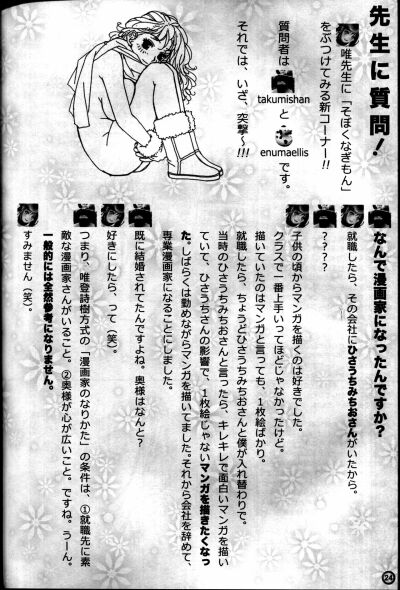 先生に質問!
唯先生に「そぼくなぎもん」
をぶつけてみる新コーナー!!
質問者は
takumishan
と
enumaellis
です。
それでは、いざ、突撃〜!!!
なんで漫画家になったんですか?
就職したら、その会社にひさうちみちおさんがいたから。
????
子供の頃からマンガを描くのは好きでした。
クラスで一番上手いってほどじゃなかったけど。
描いていたのはマンガと言っても、1枚絵ばかり。
就職したら、ちょうどひさうちみちおさんと僕が入れ替わりで。
当時のひさうちみちおさんと言ったら、キレキレで面白いマンガを描い
ていて、ひさうちさんの影響で、1枚絵じゃないマンガを描きたくなっ
た。しばらくは勤めながらマンガを描いてました。それから会社を辞めて、
専業漫画家になることにしました。
既に結婚されてたんですよね。奥様はなんと?
好きにしたら、って(笑)。
つまり、唯登詩樹方式の「漫画家のなりかた」の条件は、①就職先に素
敵な漫画家さんがいること。②奥様が心が広いこと。ですね。うーん。
一般的には全然参考になりません。
すみません(笑)。
24